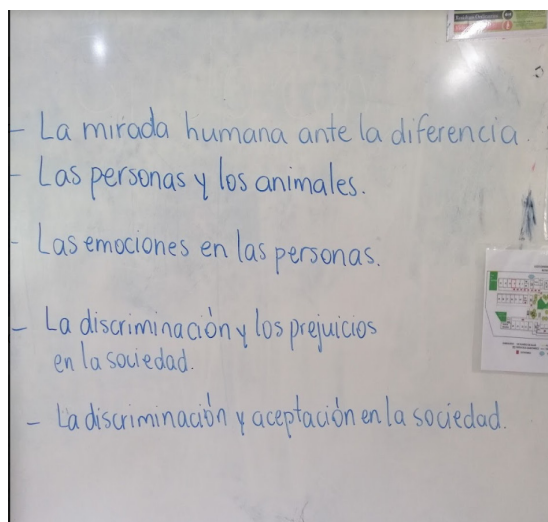 - La mirada humana ante la diferencia.
- Las personas y los animales.
- Las emociones en las personas.
- La discriminación y los prejuicios
en la sociedad.
- La discriminación y aceptación en la sociedad.